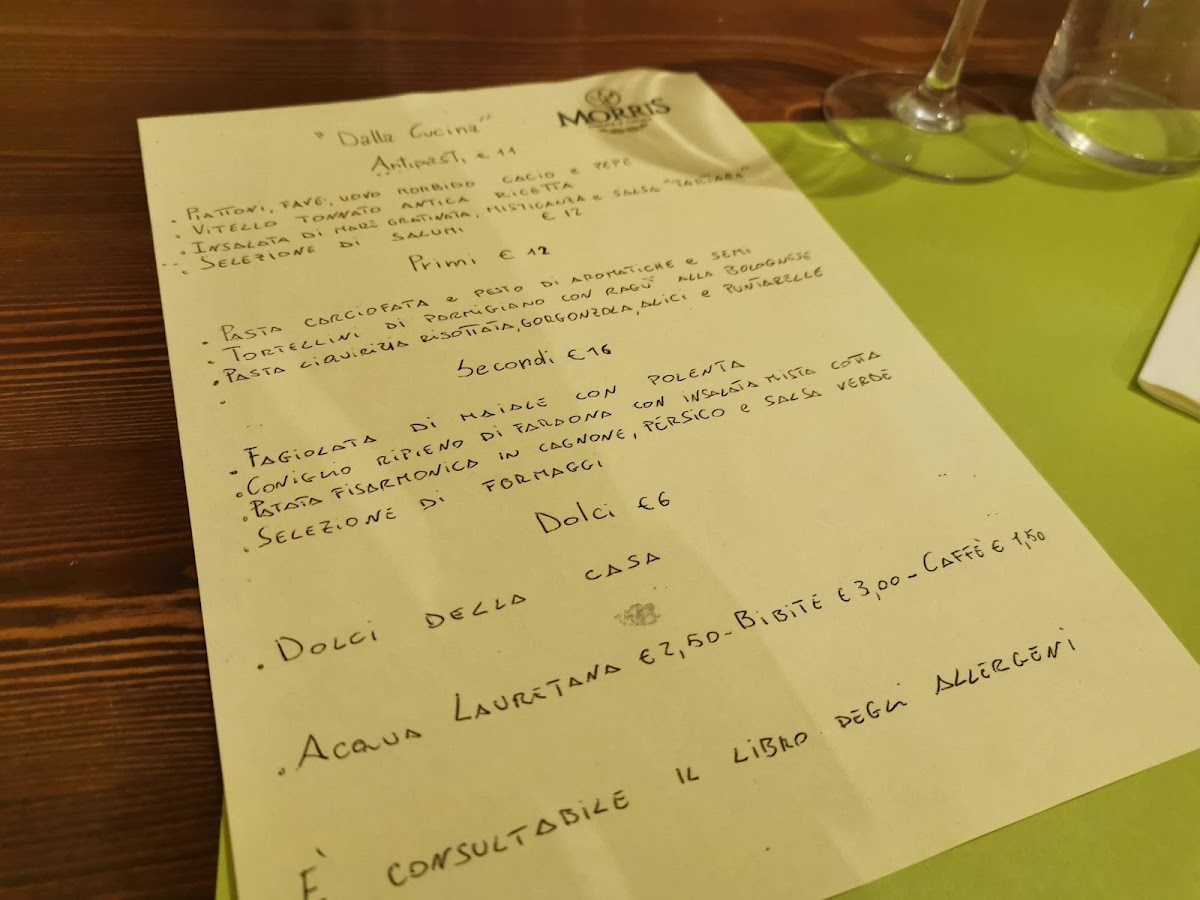 MORRIS
"Dalla Cucina"
Antipasti € 11
• PIATTONI, FAVE, UOVO MORBIDO CACIO e PEPE
• VITELLO TONNATO ANTICA RICETTA
• INSALATA DI MARE GRATINATA, MISTICANZA e SALSA "TARTARA"
• SELEZIONE DI SALUMI € 12
Primi € 12
• PASTA CARCIOFATA e PESTO DI AROMATICHE e SEMI
• TORTELLINI DI PARMIGIANO CON RAGÙ ALLA BOLOGNESE
• PASTA LIQUIRIZIA RISOTTATA, GORGONZOLA, ALICI e PUNTARELLE
Secondi € 16
• FAGIOLATA DI MAIALE CON POLENTA
• CONIGLIO RIPIENO DI FARAONA CON INSALATA MISTA COTTA
• PATATA FISARMONICA IN CAGNONE, PERSICO e SALSA VERDE
• SELEZIONE DI FORMAGGI
Dolci € 6
• DOLCI DELLA CASA
• ACQUA LAURETANA € 2,50 - BIBITE € 3,00 - CAFFÈ € 1,50
È CONSULTABILE IL LIBRO DEGLI ALLERGENI